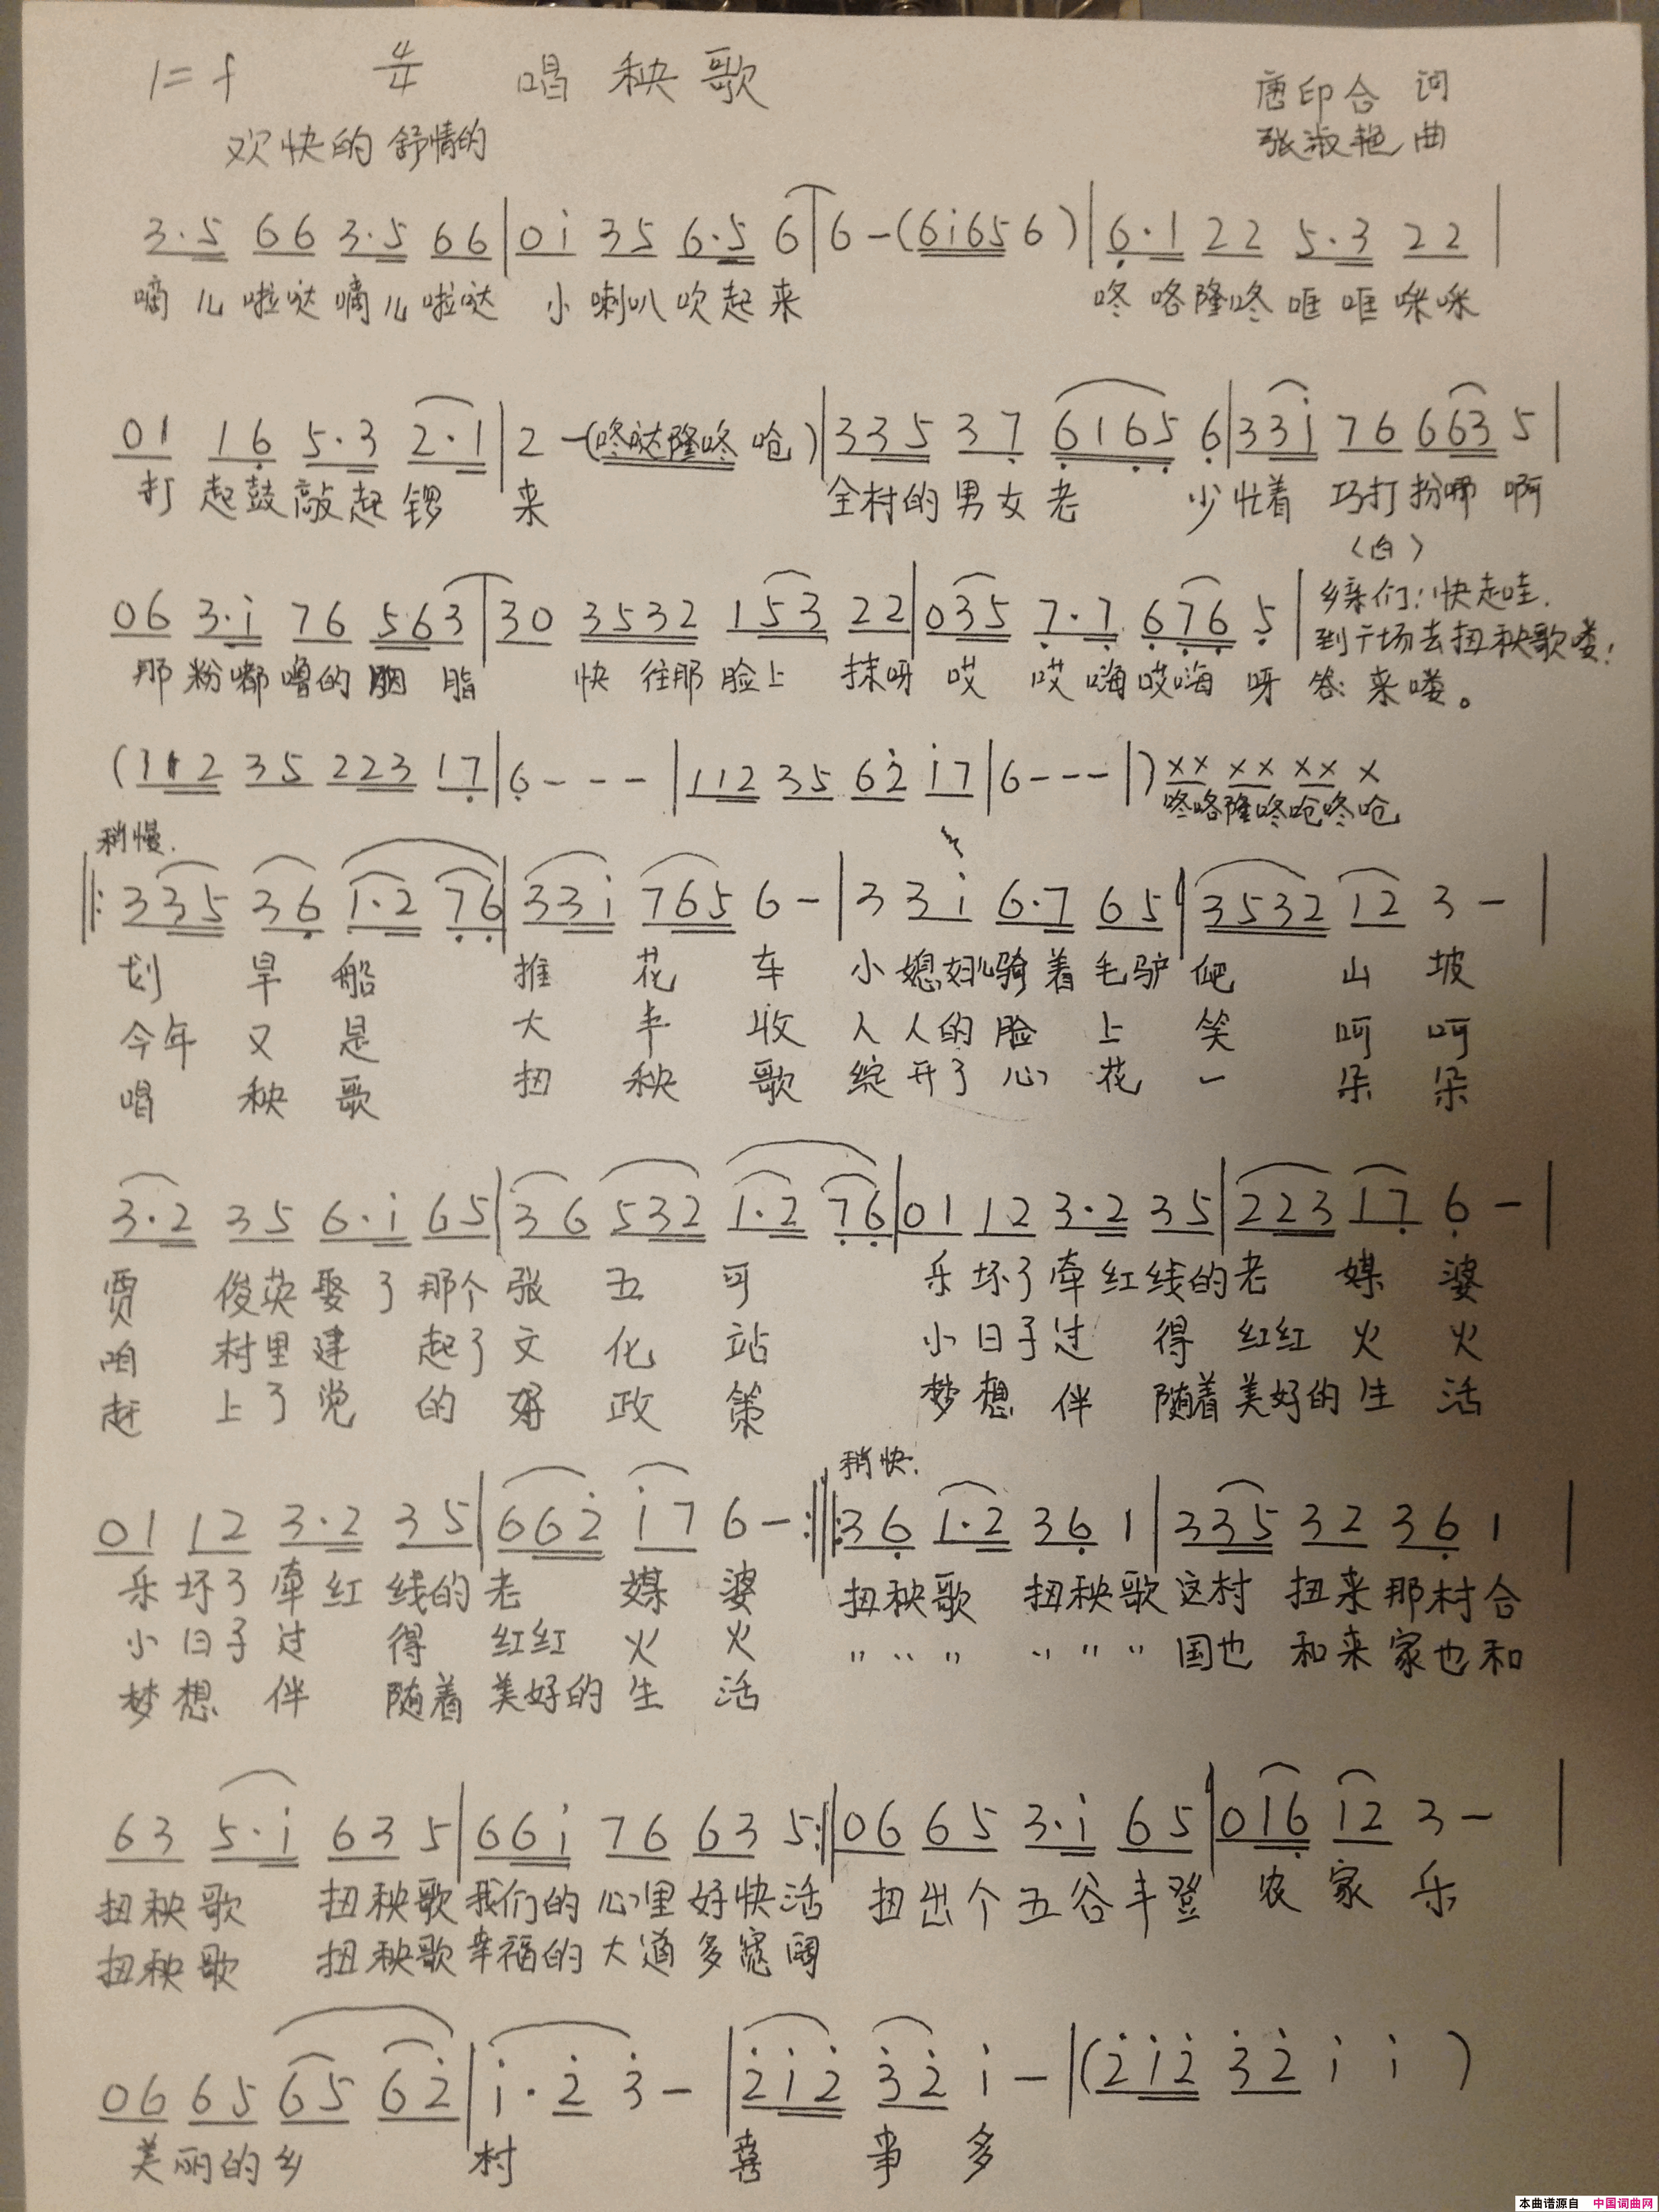 1=f 4/4 唱秧歌
唐印合 词
欢快的 舒情的
张淑艳 曲
3·5 66 3·5 66|0i 35 6·5 6|6-(6i65 6)|6·1 22 5·3 22|
嘀儿啦哒嘀儿啦哒 小喇叭吹起来 咚咯隆咚哐哐咪咪
01 16 5·3 2·1|2-(咚哒隆咚 呛)|335 37 6165 6|33i 76 663 5|
打起鼓敲起锣 来 全村的男女老 少忙着 巧打扮哪 啊
〈白〉
06 3·i 76 563|30 3532 153 22|035 7·7 676 5|乡亲们:快起哇.
到广场去扭秧歌喽!
那粉嘟噜的胭脂 快往那脸上 抹呀 哎 哎嗨哎嗨 呀 答:来喽。
(112 35 223 17|6---|112 35 62 i7|6---|)×× ×× ×× ×
咚咯隆咚呛咚呛
稍慢.
‖:335 36 1·2 76|33i 765 6-|3 3i 6·7 65|3532 12 3-|
划 旱 船 推 花 车 小媳妇儿骑着毛驴 爬 山 坡
今年 又 是 大 丰 收 人人的脸 上 笑 呵 呵
唱 秧 歌 扭 秧 歌 绽开了心 花 一 朵 朵
3·2 35 6·i 65|36 532 1·2 76|01 12 3·2 35|223 17 6-|
贾 俊英娶了那个张 五 可 乐坏了牵红线的老 媒 婆
咱 村里建 起了文 化 站 小日子过 得 红红 火 火
赶 上了党 的 好 政 策 梦想 伴 随着美好的生 活
稍快.
01 12 3·2 35|662 i7 6-:‖:36 1·2 36 1|335 32 36 1|
乐坏了牵红 线的老 媒 婆 扭秧歌 扭秧歌这村 扭来那村合
小日子过 得 红红 火 火 〃〃〃 〃〃〃国也 和来家也和
梦想 伴 随着 美好的 生 活
63 5·i 63 5|66i 76 63 5:‖06 65 3·i 65|016 12 3-|
扭秧歌 扭秧歌我们的心里好快活 扭出个五谷丰登 农家 乐
扭秧歌 扭秧歌幸福的大道多宽阔
06 65 65 62|i·2 3-|2i2 32 i-|(2i2 32 i i)
美丽的乡 村 喜 事 多
本曲谱源自 中国词曲网